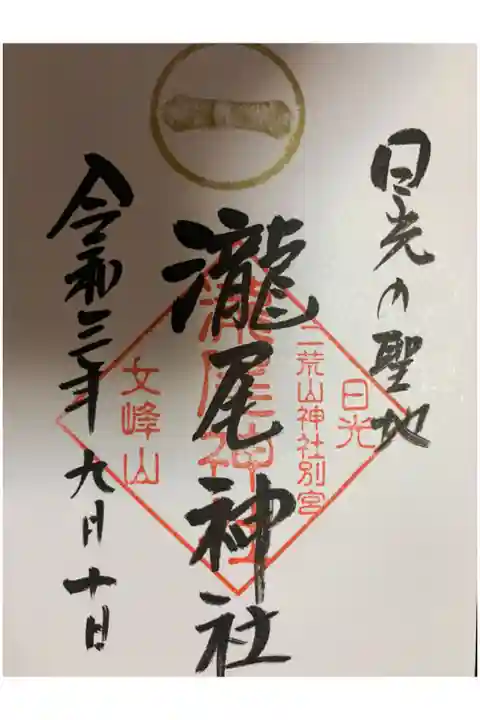 一
日光の聖地
瀧尾神社
令和三年九月十日
日光
二荒山神社別宮
瀧尾神社
女峰山